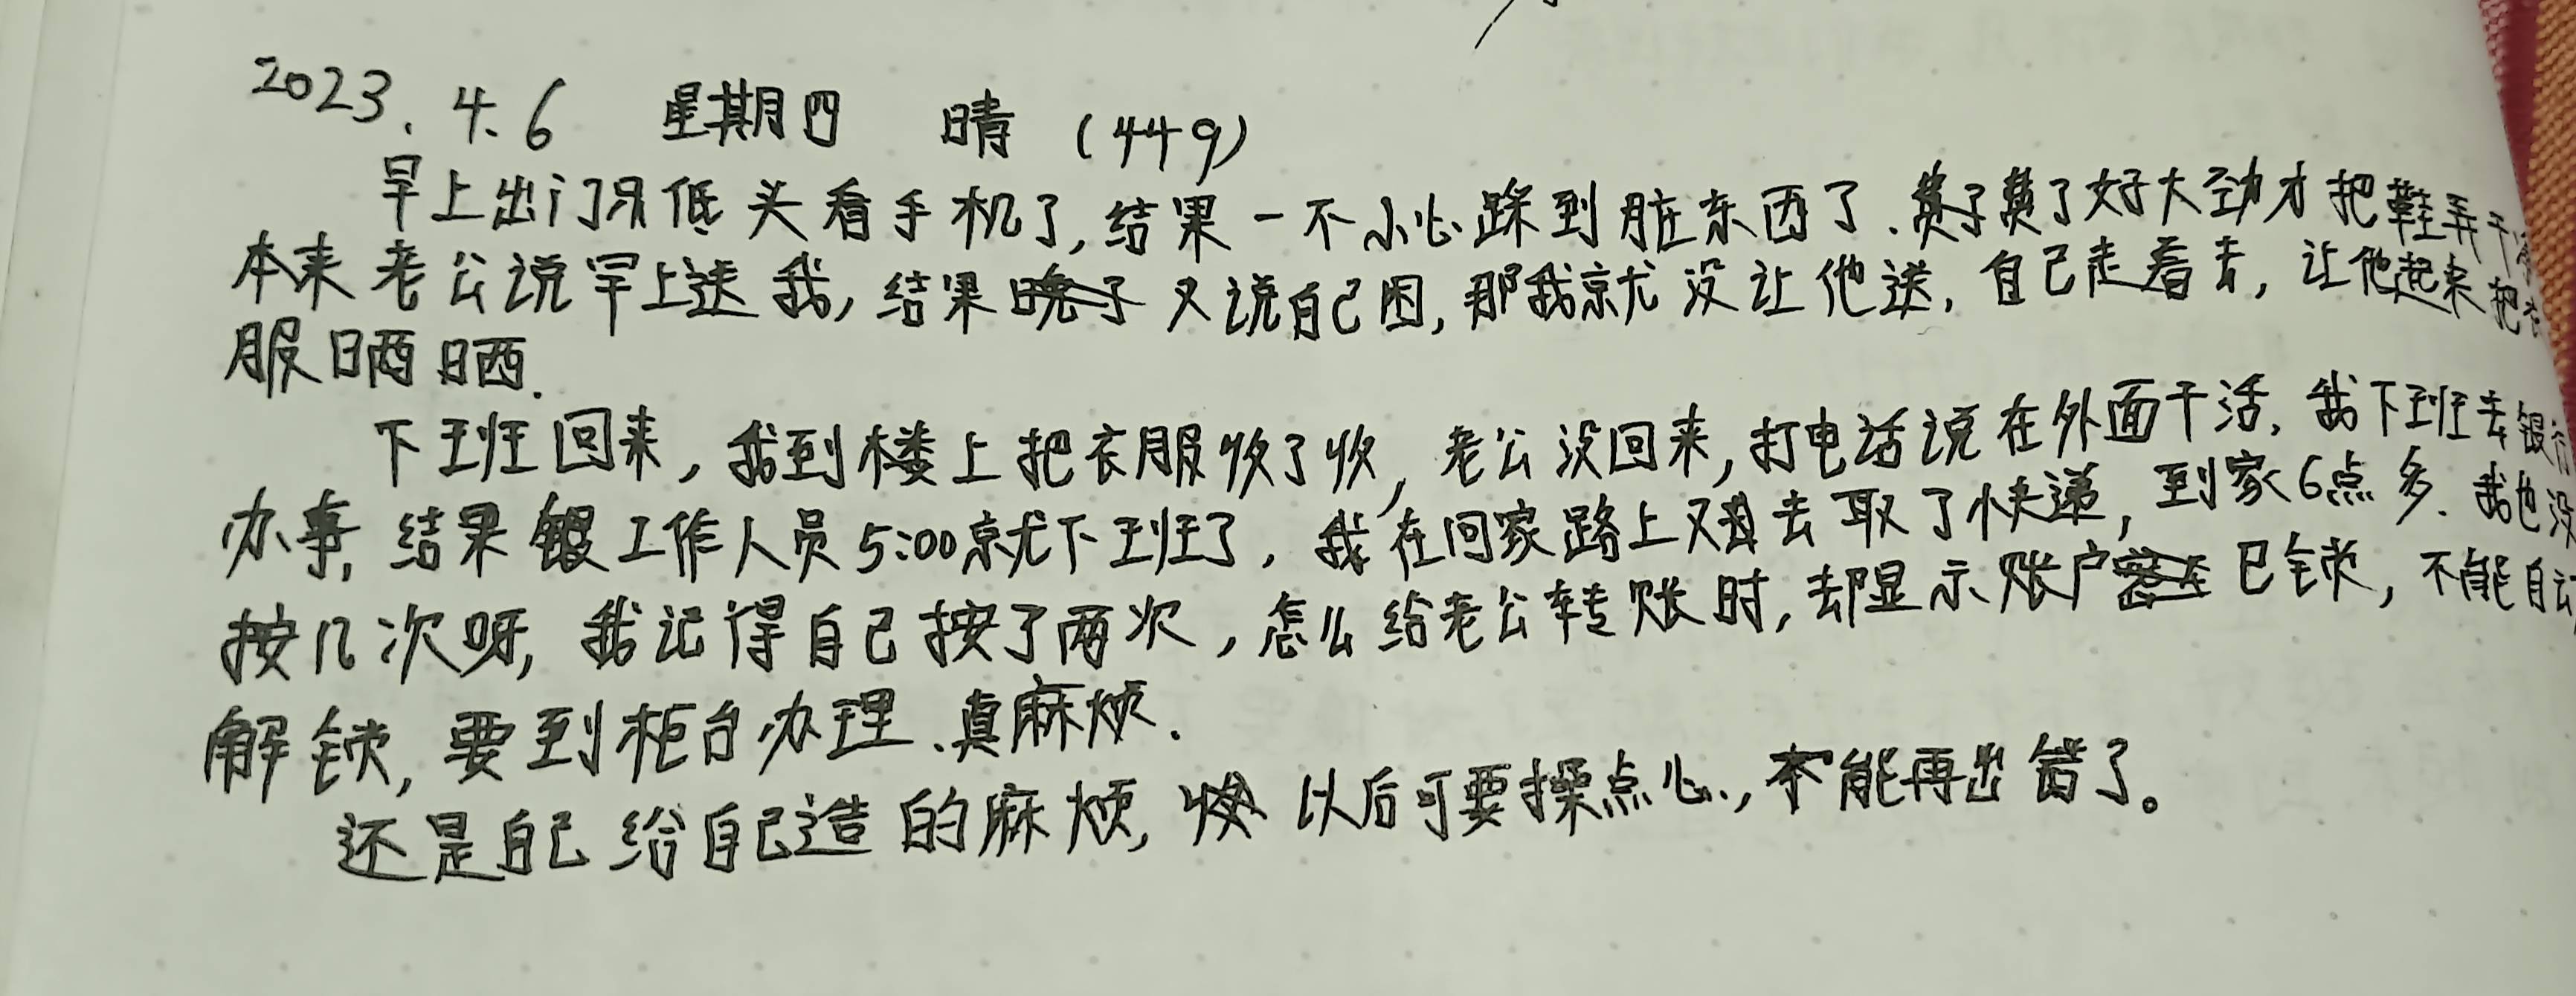 2023.4.6 星期四 晴 (449)
早上出门只低头看手机了,结果一不小心踩到脏东西了.费了好大劲才把鞋弄干
本来老公说早上送我,结果又说自己困,那我就没让他送,自己走着去,让他起来把
服晒晒.
下班回来,我到楼上把衣服收了收,老公没回来,打电话说在外面干活,我下班去银行
办事,结果银工作人员5:00就下班了,我在回家路上又去取了快递,到家6点多.我也没
按几次呀,我记得自己按了两次,怎么给老公转账时,却显示账户已锁,不能自动
解锁,要到柜台办理.真麻烦.
还是自己给自己造的麻烦,以后可要操点心,不能再出错了。